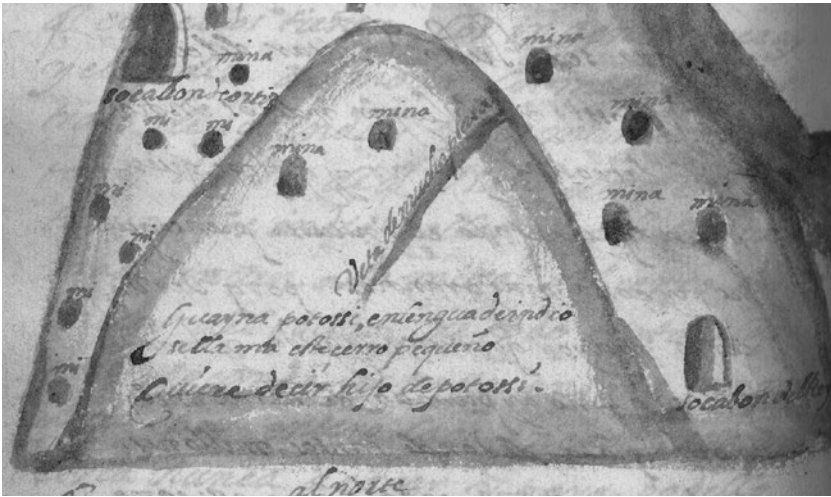 mina
mina
socabon de cortiz
mi
mi
mina
mina
mina
mi
mina
mina
mi
Veta de mucha plata
mi
Guayna potossi, en lengua de indio
se llama este cerro pequeño
Quiere decir hijo de potossi.
mi
socabon del Rey
al norte